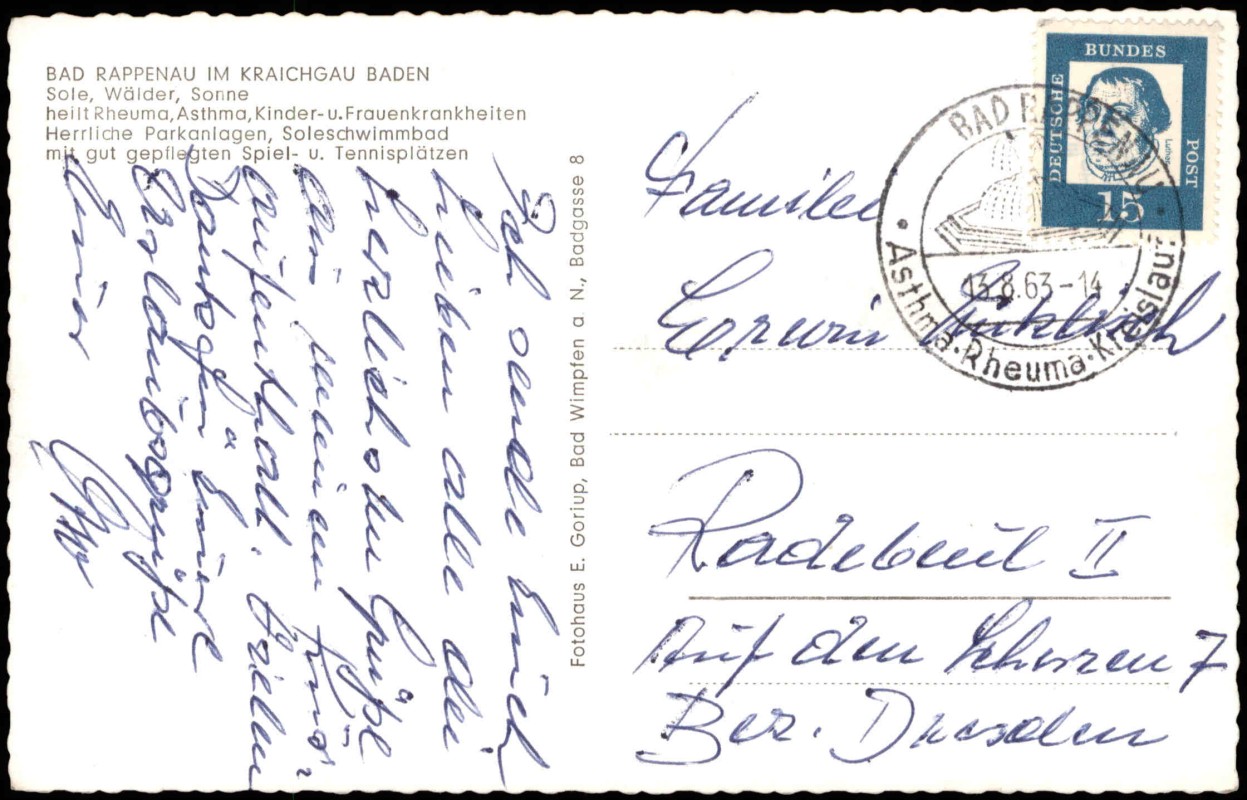 BAD RAPPENAU IM KRAICHGAU BADEN
Sole, Wälder, Sonne
heilt Rheuma, Asthma, Kinder- u. Frauenkrankheiten
Herrliche Parkanlagen, Soleschwimmbad
mit gut gepflegten Spiel- u. Tennisplätzen
Ich sende Euch
lieben alle die
herzlichsten Grüße
aus meinem Kur=
aufenthalt. Vielen
Dank für Eure
Urlaubsgrüße
Euer
Otto
Fotohaus E. Goriup, Bad Wimpfen a. N., Badgasse 8
DEUTSCHE
BUNDES
POST
Luther
15
BAD RAPPENAU
13.8.63-14
Asthma · Rheuma · Kreislauf
Familie
Erwin
Radebeul II
Auf den Scherzen 7
Bez. Dresden